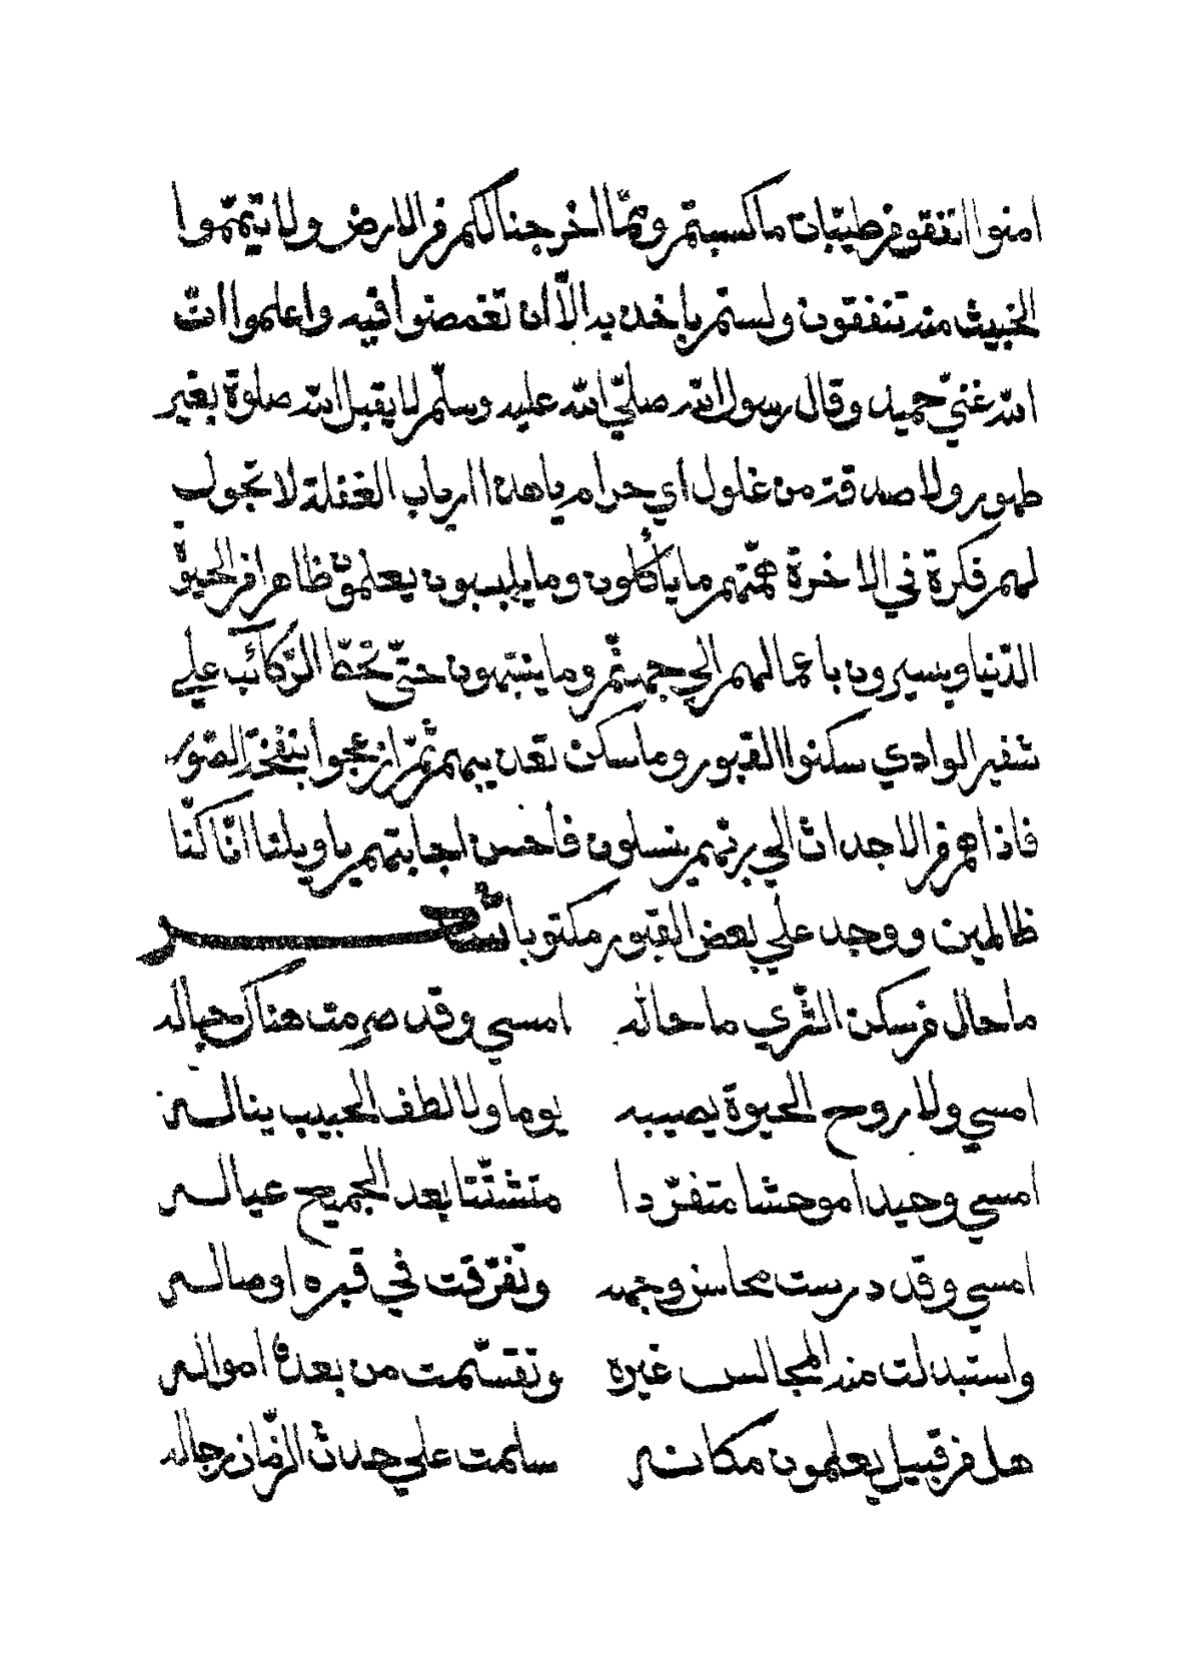 امنوا انفقو من طيبات ما كسبتم وممّا اخرجنا لكم من الارض ولا تيمّموا
الخبيث منه تنفقون ولستم باخديه الّا ان تغمضوا فيه واعلموا انّ
الله غنيّ حميد وقال رسول الله صلّي الله عليه وسلّم لا يقبل الله صلوة بغير
طهور ولا صدقة من غلول اي حرام ياهدا ارباب الغفلة لا تجول
لهم فكرة في الاخرة همّتهم ما يأكلون وما يلبسون يعلمون ظاهرا من الحيوة
الدّنيا ويسيرون باعمالهم الي جهنّم وما ينتبهون حتّي تحطّ الرّكائب علي
شفير الوادي سكنوا القبور وما سكن تعديبهم ثمّ ازعجوا بنفخة الصّور
فاذا هم من الاجداث الي ربّهم ينسلون فأحسن اجابتهم يا ويلنا انّا كنّا
ظالمين ووجد علي بعض القبور مكتوبا شعر
ما حال من سكن الثّري ما حاله امسي وقد صرمت هناك حباله
امسي ولا روح الحيوة يصيبه يوما ولا لطف الحبيب يناله
امسي وحيدا موحشا متفرّدا متشتّتا بعد الجميع عياله
امسي وقد درست محاسن وجهه وتفرّقت في قبره اوصاله
واستبدلت منه المجالس غيره وتقسّمت من بعده امواله
هل من قبيل يعلمون مكانه سلمت علي حدث الزّمان رجاله